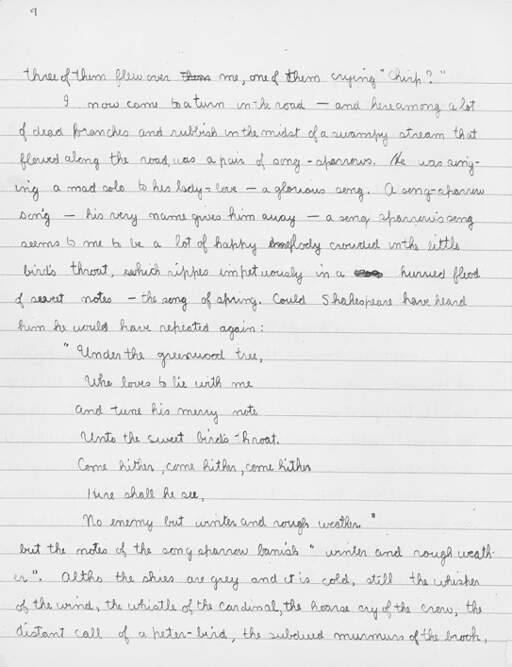 9
three of them flew over them me, one of them crying "Chirp?"
I now come to a turn in the road — and here among a lot
of dead branches and rubbish in the midst of a swampy stream that
flowed along the road, was a pair of song-sparrows. He was sing-
ing a mad solo to his lady-love — a glorious song. A song-sparrow
song — his very name gives him away — a song sparrow's song
seems to me to be a lot of happy melody crowded in the little
bird's throat, which rippes impetuously in a hurried flood
of sweet notes — the song of spring. Could Shakespeare have heard
him he would have repeated again:
"Under the greenwood tree,
Who loves to lie with me
And tune his merry note
Unto the sweet bird's throat.
Come hither, come hither, come hither
Here shall he see,
No enemy but winter and rough weather"
but the notes of the song sparrow banish "winter and rough weath-
er". Altho the skies are grey and it is cold, still the whisper
of the wind, the whistle of the cardinal, the hoarse cry of the crow, the
distant call of a peter-bird, the subdued murmurs of the brook,